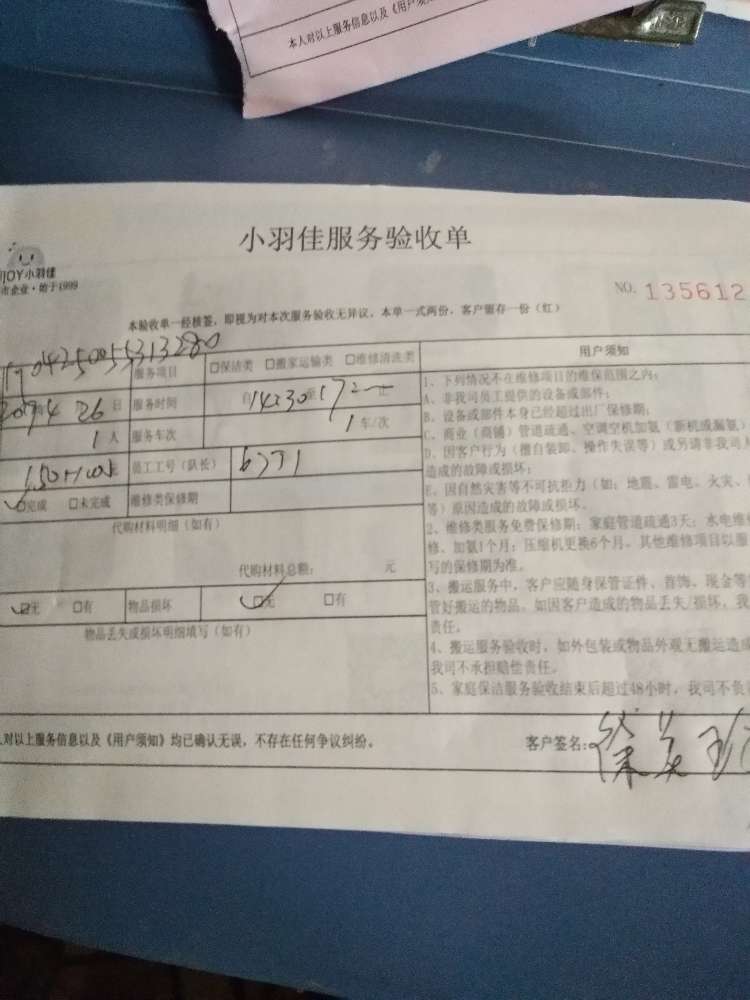 本人对以上服务信息以及《用户须
小羽佳服务验收单
JOY小羽佳
市企业·始于1999
NO. 135612
本验收单一经核签，即视为对本次服务验收无异议，本单一式两份，客户留存一份（红）
0425055313280
服务项目 □保洁类 □搬家运输类 □维修清洗类
4 26 日 服务时间 自 14:30 至 17 止
1 人 服务车次 1 车/次
员工工号（队长） 6771
完成 □未完成 维修类保修期
代购材料明细（如有）
代购材料总额： 元
无 □有 物品损坏 □无 □有
物品丢失或损坏明细填写（如有）
用户须知
1、下列情况不在维修项目的维保范围之内：
A、非我司员工提供的设备或部件；
B、设备或部件本身已经超过出厂保修期；
C、商业（商铺）管道疏通、空调空机加氨（新机或漏氨）
D、因客户行为（擅自装卸、操作失误等）或另请非我司人
造成的故障或损坏；
E、因自然灾害等不可抗拒力（如：地震、雷电、火灾、
等）原因造成的故障或损坏。
2、维修类服务免费保修期：家庭管道疏通3天；水电维
修、加氨1个月；压缩机更换6个月。其他维修项目以服
写的保修期为准。
3、搬运服务中，客户应随身保管证件、首饰、现金等
管好搬运的物品。如因客户造成的物品丢失/损坏，我
责任。
4、搬运服务验收时，如外包装或物品外观无搬运造成
我司不承担赔偿责任。
5、家庭保洁服务验收结束后超过48小时，我司不负
人对以上服务信息以及《用户须知》均已确认无误，不存在任何争议纠纷。
客户签名：徐美珍